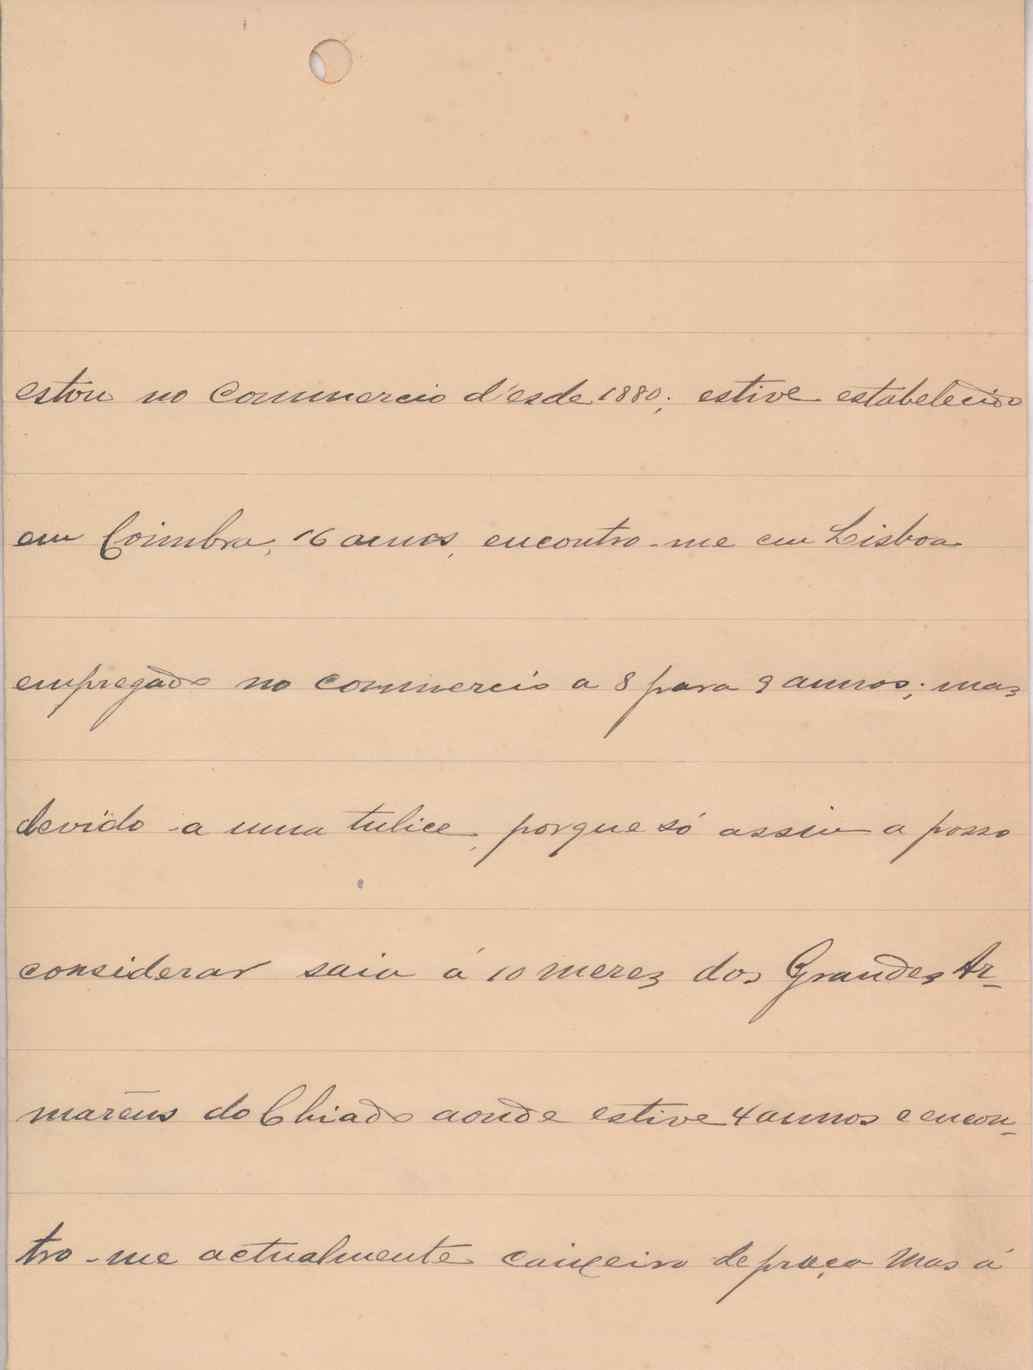 estou no Commercio d'esde 1880; estive estabelecido
em Coimbra, 16 annos, encontro-me em Lisboa
empregado no commercio a 8 para 9 annos; mas
devido a uma tulice, porque só assim a posso
considerar saiu á 10 merez dos Grandes Ar-
marens do Chiado aonde estive 4 annos e encon-
tro-me actualmente caixeiro de praça mas á